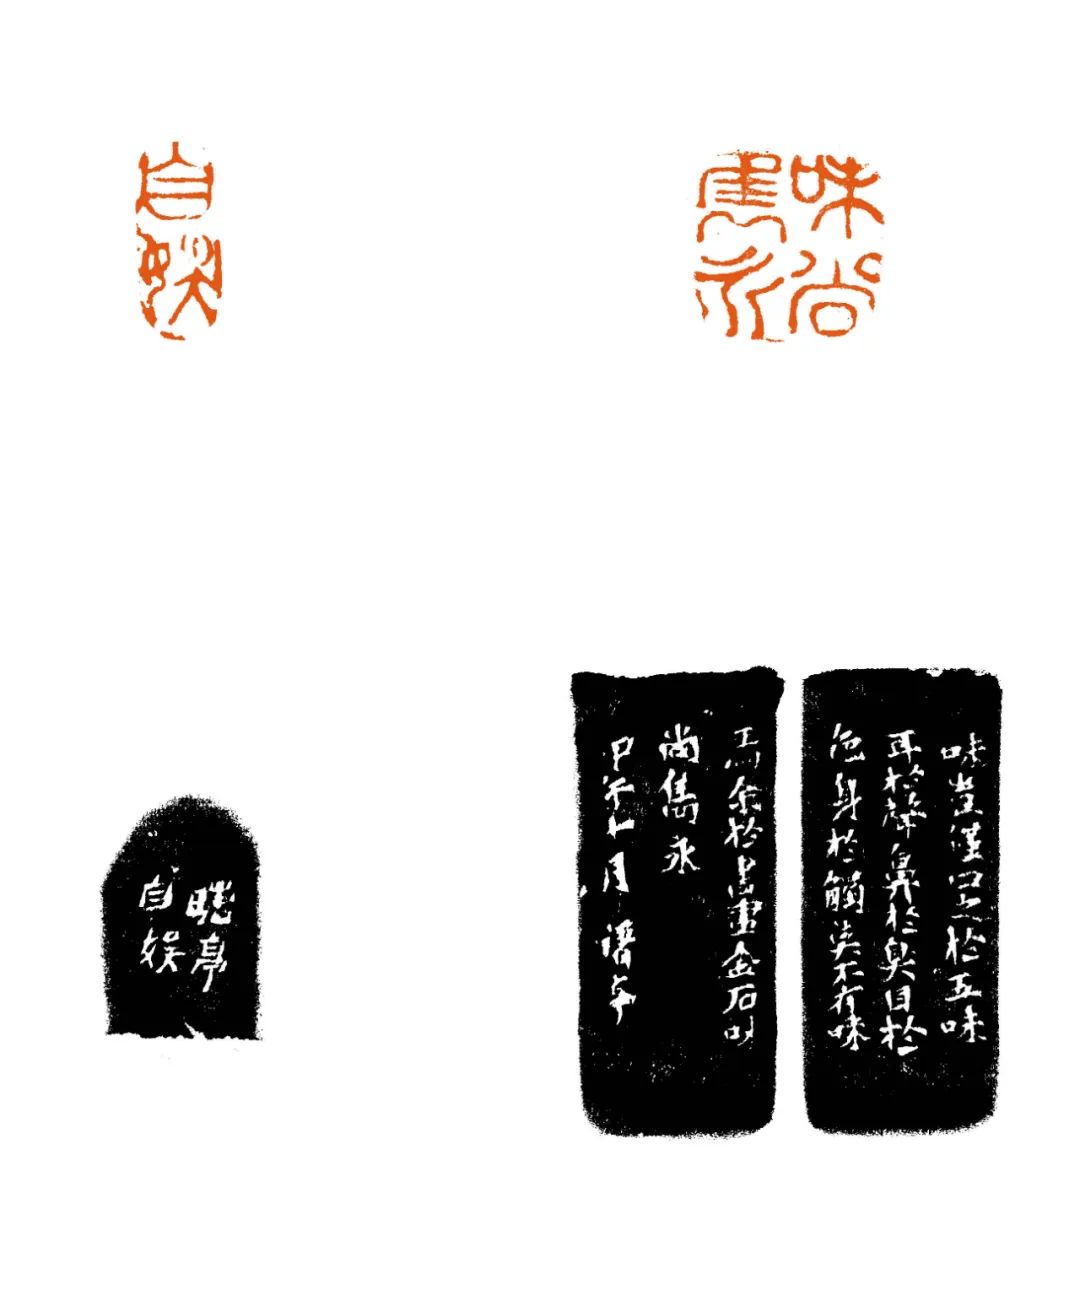 味尚
雋永
自
娛
味豈僅口之於五味
耳於聲鼻於臭目於
色身於觸莫不有味
焉余於書畫金石以
尚雋永
甲午七月
亭
自娛